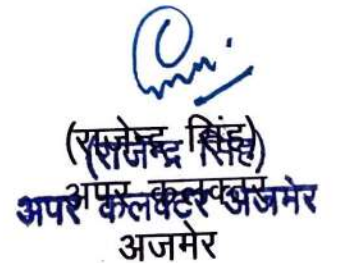 (राजेन्द्र सिंह)
(राजेन्द्र सिंह)
अपर कलक्टर
अपर कलेक्टर अजमेर
अजमेर